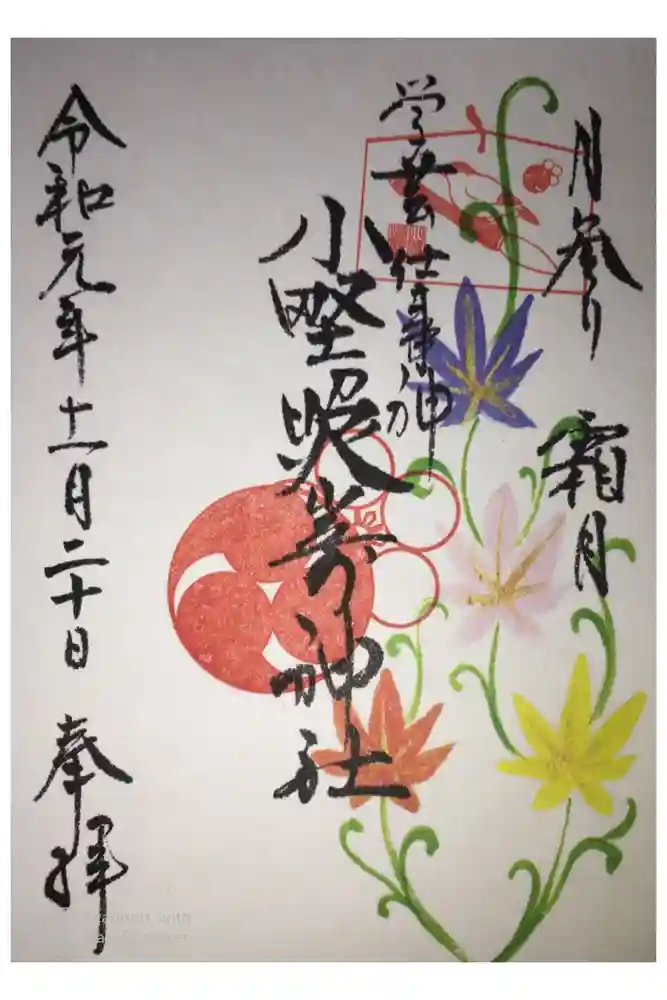 月参り 霜月
学芸仕事の神
小野照崎神社
令和元年十一月二十日 奉拝